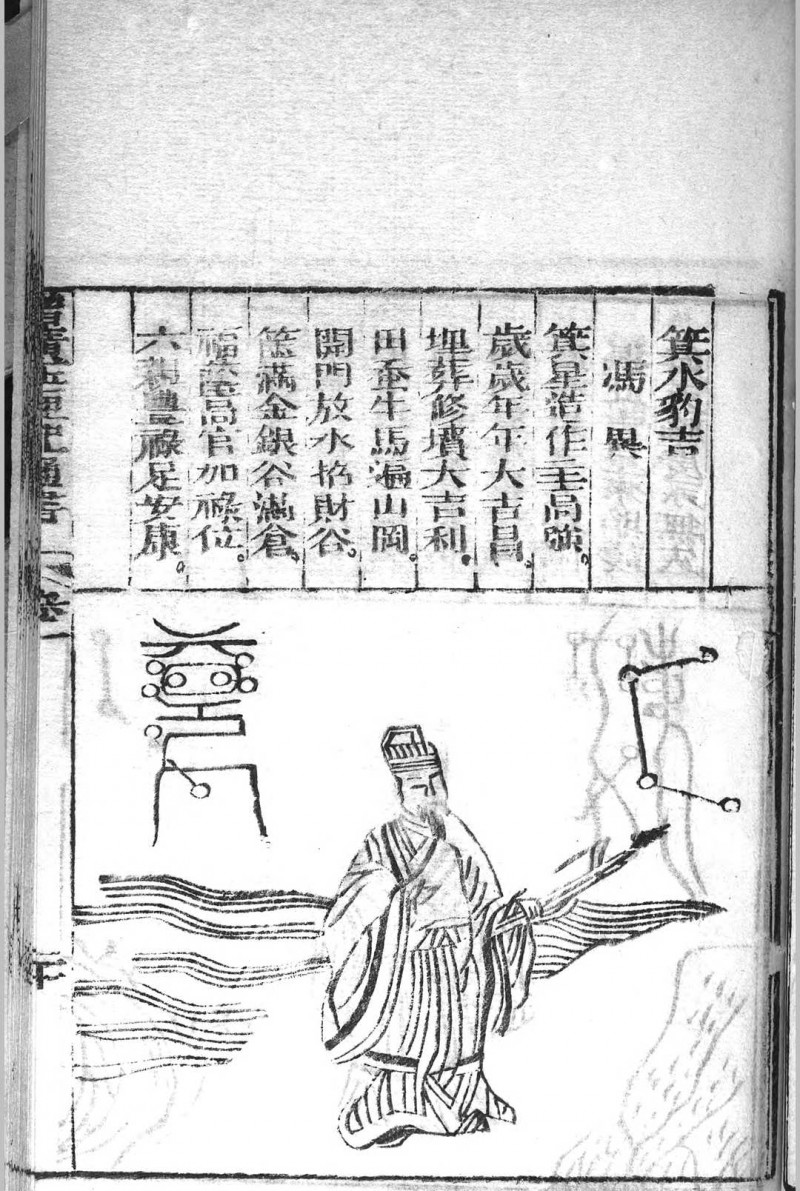 箕水豹吉
馮異
箕星造作主高強。
歲歲年年大吉昌。
埋葬修墳大吉利。
田蚕牛馬遍山岡。
開門放水招財谷。
篋滿金銀谷滿倉。
福蔭高官加祿位。
六親豊祿足安康。
通書